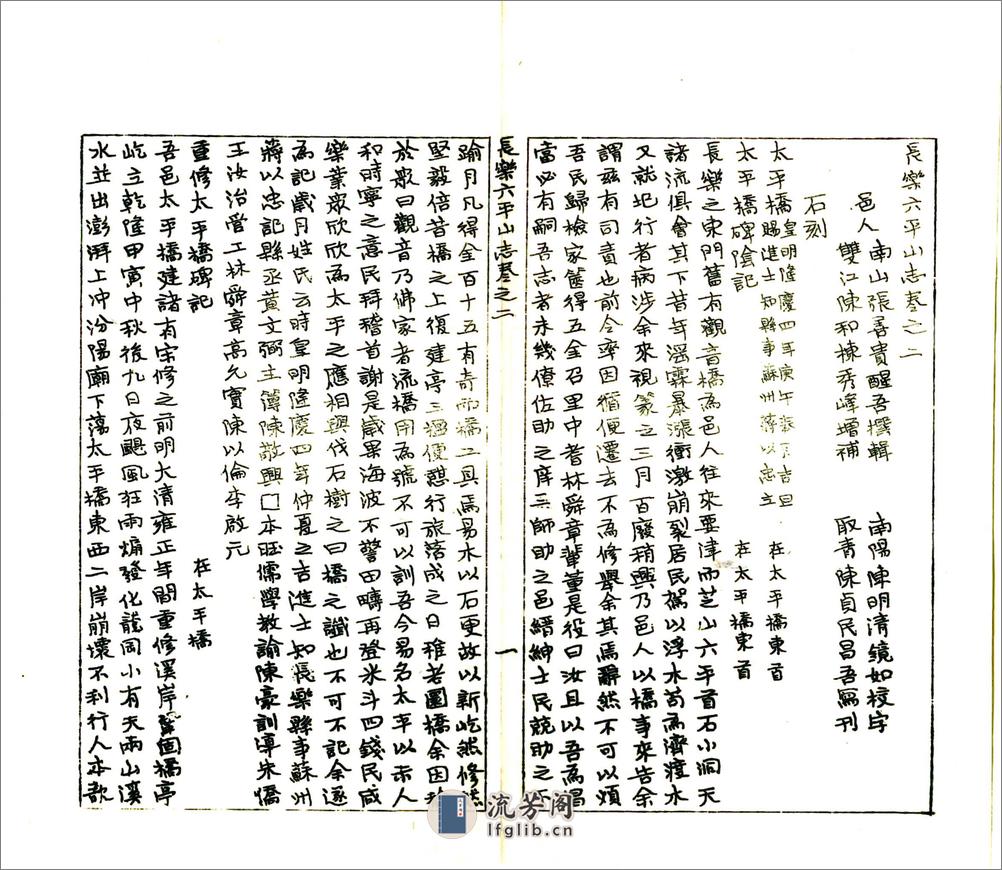 長樂六平山志卷之二
邑人 南山張善貴醒吾撰輯 南陽陳明清鏡如校字
雙江陳和棟秀峰增補 取青陳貞民昌吾寫刊
石刻
太平橋 皇明隆慶四年庚午吉旦 賜進士知縣事蘇州蔣以忠立 在太平橋東首
太平橋碑陰記 在太平橋東首
長樂之東門舊有觀音橋為邑人往來要津而芝山六平首石小洞天
諸流俱會其下昔年滛霖暴漲衝激崩裂居民駕以浮木苟為濟渡水
又就圮行者病涉余來視篆之三月百廢稍興乃邑人以橋事來告余
謂茲有司責也前令率因循便遷去不為修舉余其焉辭然不可以煩
吾民歸檢家篋得五金召里中耆林舜章輩董是役曰汝且以吾為倡
富必有嗣吾志者未幾僚佐助之庠三師助之邑縉紳士民競助之不
長樂六平山志卷之二 一
踰月凡得金百十五有奇而橋工具焉易木以石更故以新屹然修然
堅毅倍昔橋之上復建亭三楹便憇行旅落成之日稚老圜橋余因
於衆曰觀音乃佛家者流橋用為號不可以訓吾今易名太平以示人
和時寧之意民拜稽首謝是歲果海波不警田疇再登米斗四錢民咸
樂業衆欣欣為太平之應相與伐石樹之曰橋之讖也不可不記余遂
為記歲月姓氏云時皇明隆慶四年仲夏之吉進士知長樂縣事蘇州
蔣以忠記縣丞黃文弼主簿陳敬興□本旺儒學教諭陳豪訓導朱僑
王汝治管工林舜章高允實陳以倫李啟元
重修太平橋碑記 在太平橋
吾邑太平橋建諸有宋修之前明大清雍正年間重修溪岸鞏固橋亭
屹立乾隆甲寅中秋後九日夜颶風狂雨煽發化龍岡小有天兩山溪
水並出澎湃上冲汾陽廟下蕩太平橋東西二岸崩壞不利行人本歆
流芳阁
lfglib.cn